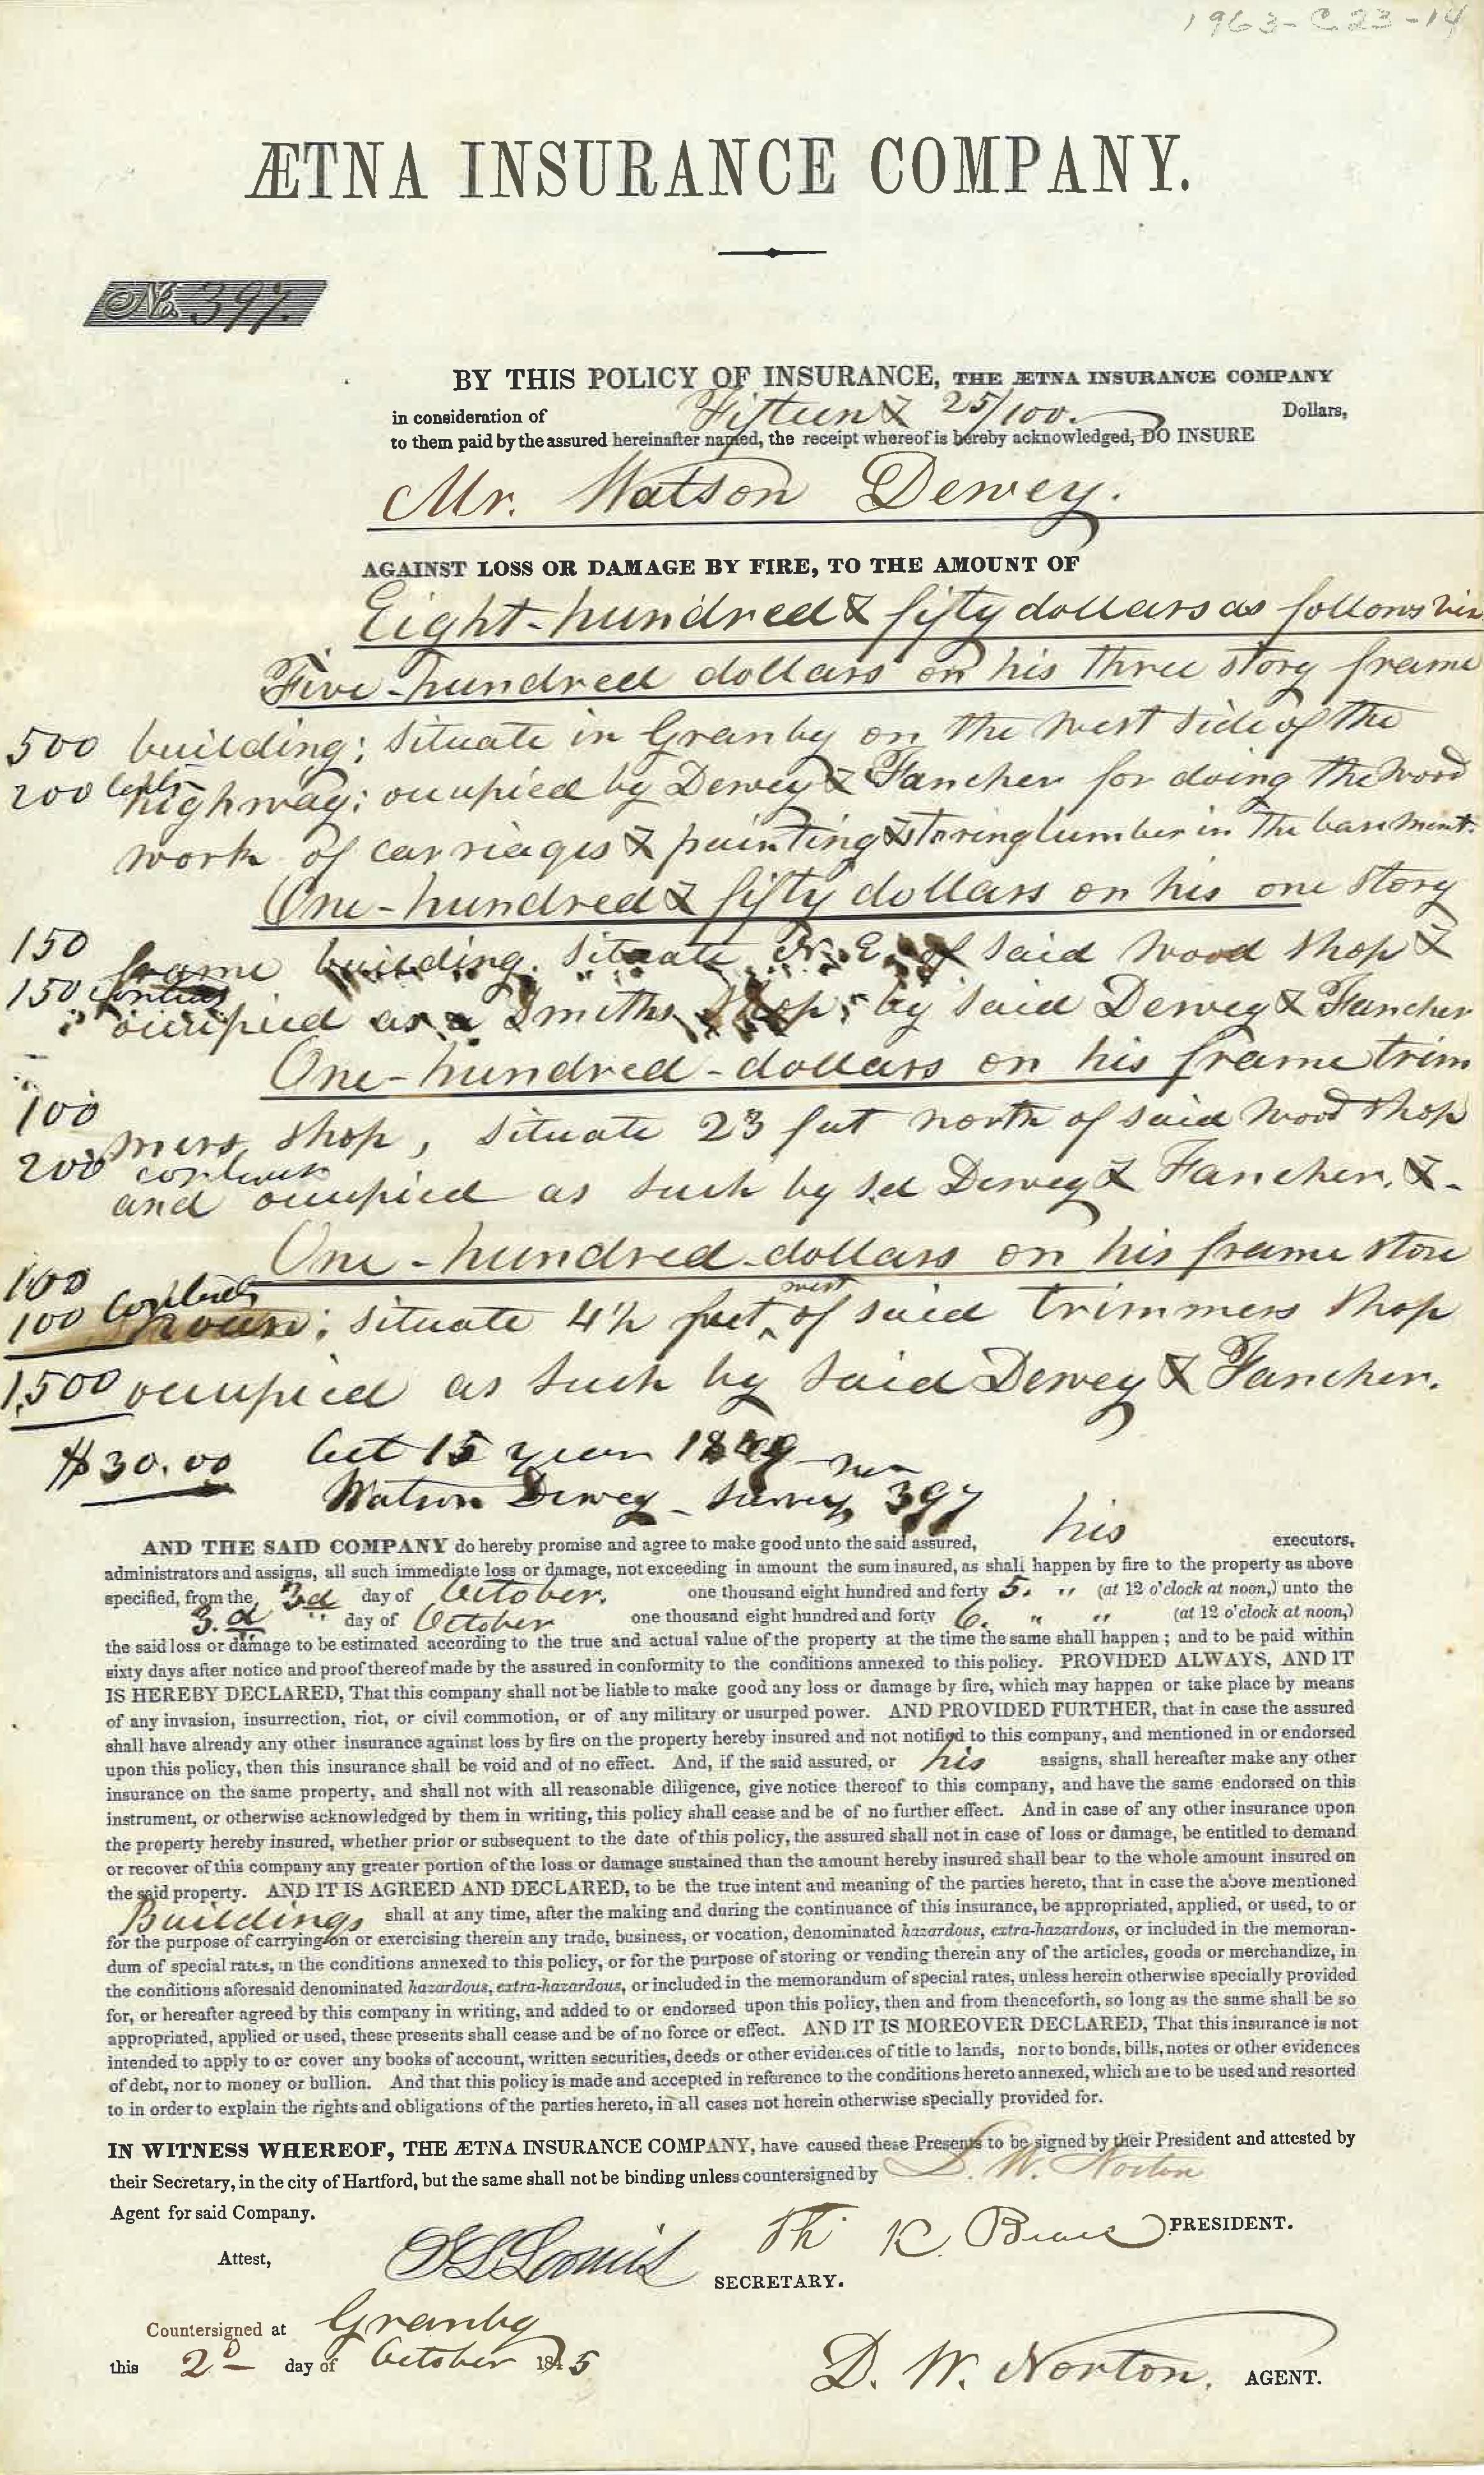 1963-C23-14
ÆTNA INSURANCE COMPANY.
No. 397.
BY THIS POLICY OF INSURANCE, THE ÆTNA INSURANCE COMPANY
in consideration of Fifteen & 25/100. Dollars,
to them paid by the assured hereinafter named, the receipt whereof is hereby acknowledged, DO INSURE
Mr. Watson Dewey.
AGAINST LOSS OR DAMAGE BY FIRE, TO THE AMOUNT OF
Eight-hundred & fifty dollars as follows viz
Five-hundred dollars on his three story frame
500 building; situate in Granby on the West side of the
200 highway; occupied by Dewey & Fancher for doing the Wood
work of carriages & painting & storing lumber in the basement.
One-hundred & fifty dollars on his one story
150 frame building. situate N. E. of said Wood shop &
150 contents occupied as a Smiths Shop; by said Dewey & Fancher
One-hundred-dollars on his frame trim
100 mers shop, situate 23 feet north of said Wood shop
200 contents and occupied as such by sd Dewey & Fancher. &-
One-hundred-dollars on his frame store
100
100 contents house; situate 42 feet west of said trimmers shop
1,500 occupied as such by said Dewey & Fancher.
$30.00 Oct 15 year 1849
Watson Dewey - Survey 397
AND THE SAID COMPANY do hereby promise and agree to make good unto the said assured, his executors,
administrators and assigns, all such immediate loss or damage, not exceeding in amount the sum insured, as shall happen by fire to the property as above
specified, from the 3d day of October. one thousand eight hundred and forty 5. " (at 12 o'clock at noon,) unto the
3.d day of October one thousand eight hundred and forty 6. " " (at 12 o'clock at noon,)
the said loss or damage to be estimated according to the true and actual value of the property at the time the same shall happen; and to be paid within
sixty days after notice and proof thereof made by the assured in conformity to the conditions annexed to this policy. PROVIDED ALWAYS, AND IT
IS HEREBY DECLARED, That this company shall not be liable to make good any loss or damage by fire, which may happen or take place by means
of any invasion, insurrection, riot, or civil commotion, or of any military or usurped power. AND PROVIDED FURTHER, that in case the assured
shall have already any other insurance against loss by fire on the property hereby insured and not notified to this company, and mentioned in or endorsed
upon this policy, then this insurance shall be void and of no effect. And, if the said assured, or his assigns, shall hereafter make any other
insurance on the same property, and shall not with all reasonable diligence, give notice thereof to this company, and have the same endorsed on this
instrument, or otherwise acknowledged by them in writing, this policy shall cease and be of no further effect. And in case of any other insurance upon
the property hereby insured, whether prior or subsequent to the date of this policy, the assured shall not in case of loss or damage, be entitled to demand
or recover of this company any greater portion of the loss or damage sustained than the amount hereby insured shall bear to the whole amount insured on
the said property. AND IT IS AGREED AND DECLARED, to be the true intent and meaning of the parties hereto, that in case the above mentioned
Buildings shall at any time, after the making and during the continuance of this insurance, be appropriated, applied, or used, to or
for the purpose of carrying on or exercising therein any trade, business, or vocation, denominated hazardous, extra-hazardous, or included in the memoran-
dum of special rates, in the conditions annexed to this policy, or for the purpose of storing or vending therein any of the articles, goods or merchandize, in
the conditions aforesaid denominated hazardous, extra-hazardous, or included in the memorandum of special rates, unless herein otherwise specially provided
for, or hereafter agreed by this company in writing, and added to or endorsed upon this policy, then and from thenceforth, so long as the same shall be so
appropriated, applied or used, these presents shall cease and be of no force or effect. AND IT IS MOREOVER DECLARED, That this insurance is not
intended to apply to or cover any books of account, written securities, deeds or other evidences of title to lands, nor to bonds, bills, notes or other evidences
of debt, nor to money or bullion. And that this policy is made and accepted in reference to the conditions hereto annexed, which are to be used and resorted
to in order to explain the rights and obligations of the parties hereto, in all cases not herein otherwise specially provided for.
IN WITNESS WHEREOF, THE ÆTNA INSURANCE COMPANY, have caused these Presents to be signed by their President and attested by
their Secretary, in the city of Hartford, but the same shall not be binding unless countersigned by D. W. Norton
Agent for said Company.
Th K. Brace PRESIDENT.
Attest, S L Loomis SECRETARY.
Countersigned at Granby
this 2d day of October 1845
D. W. Norton. AGENT.